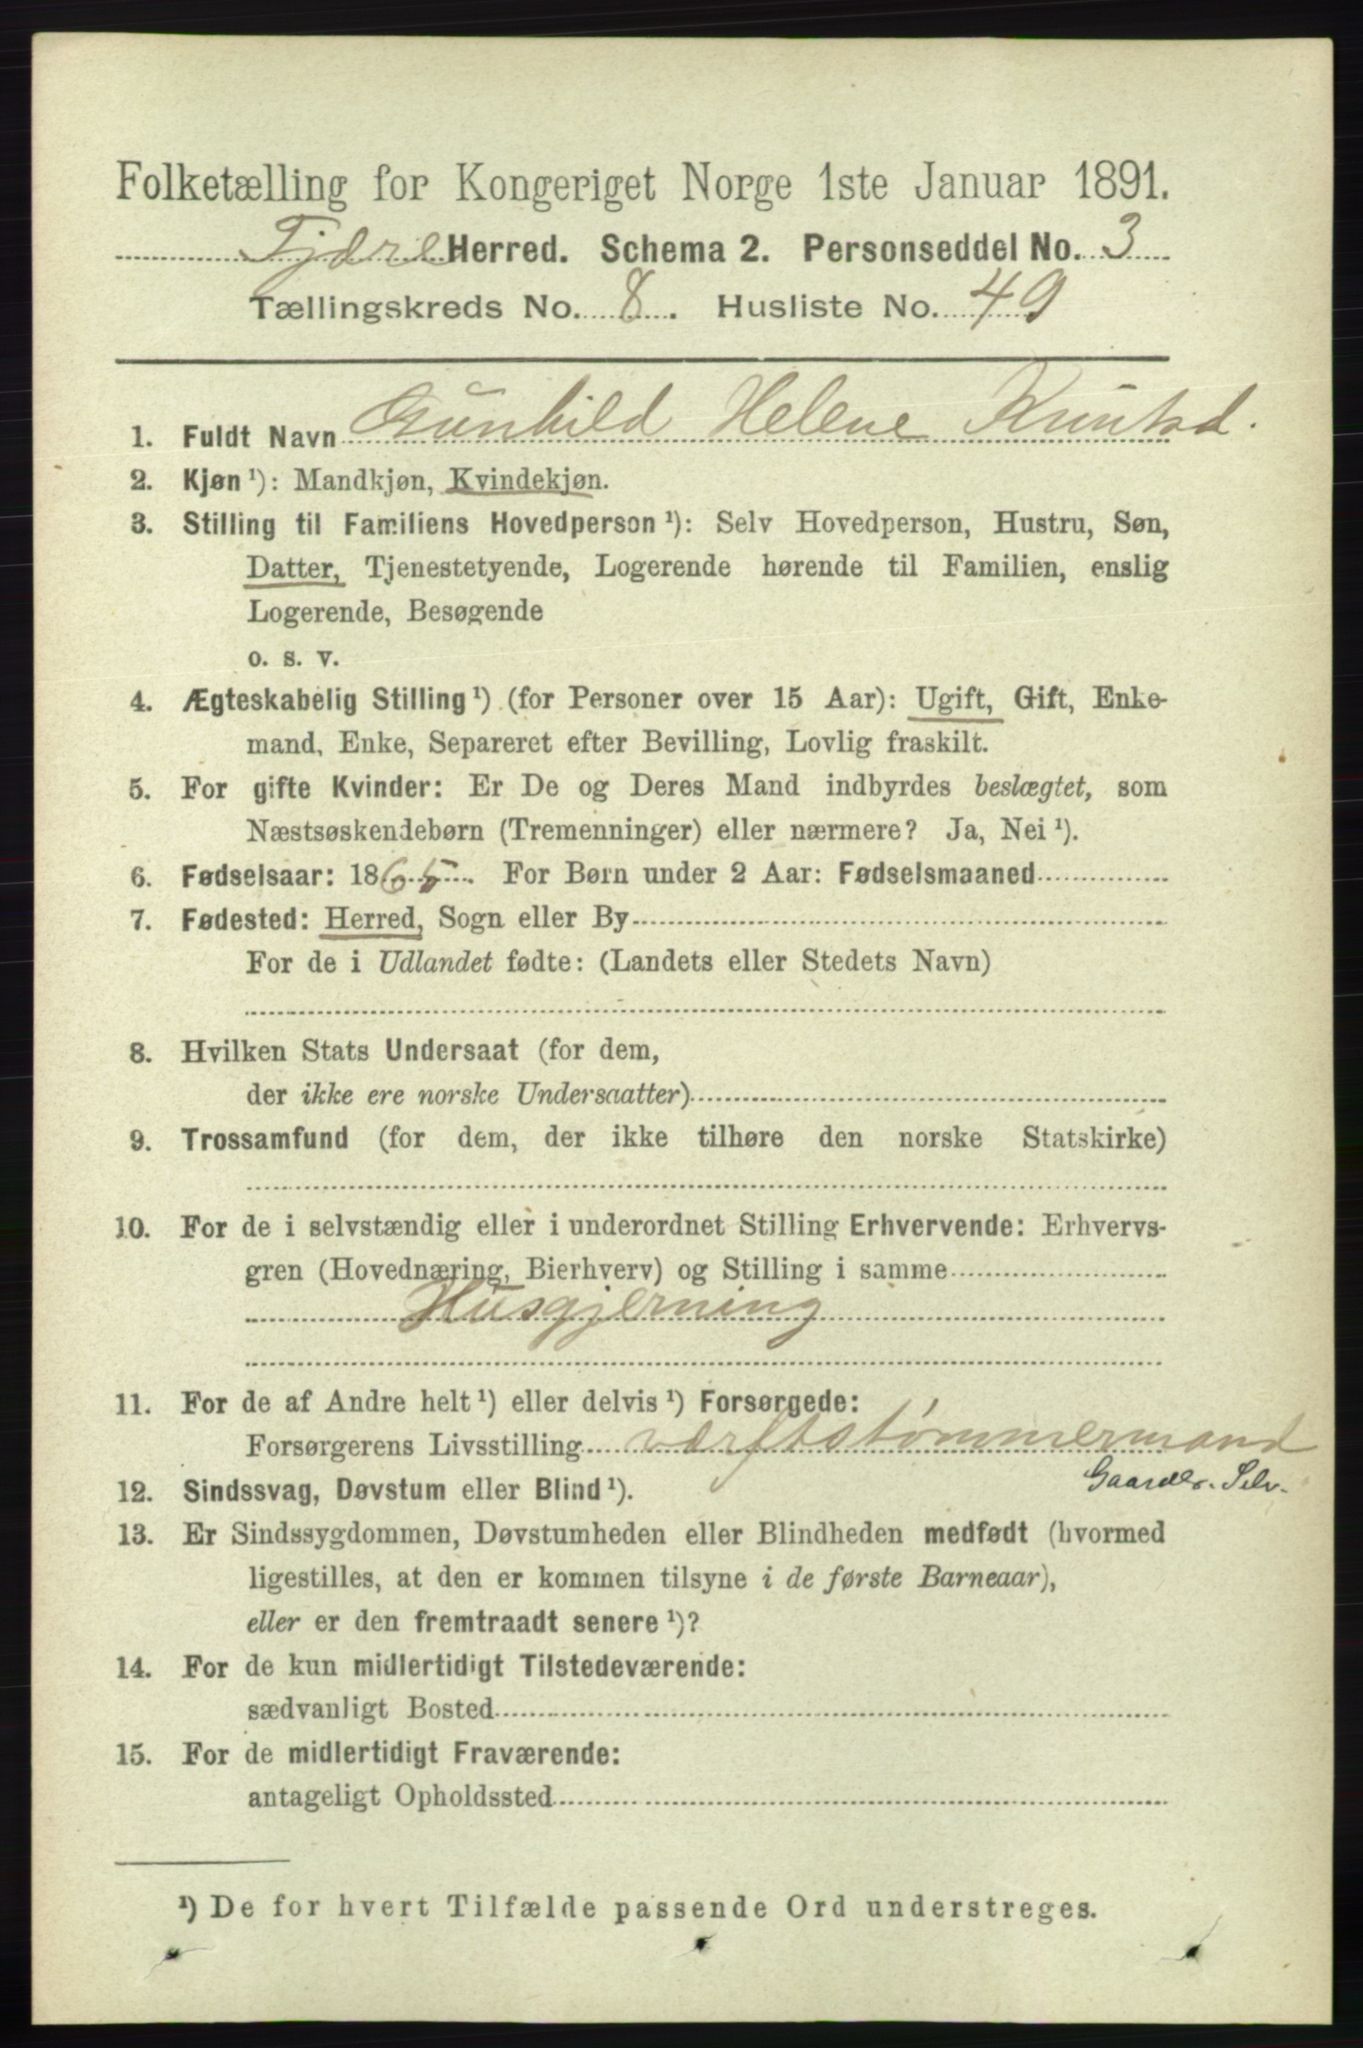 Folketælling for Kongeriget Norge 1ste Januar 1891.
Tjøme Herred. Schema 2. Personseddel No. 3
Tællingskreds No. 8. Husliste No. 49
1. Fuldt Navn Gunhild Helene Knutsd.
2. Kjøn ¹): Mandkjøn, Kvindekjøn.
3. Stilling til Familiens Hovedperson ¹): Selv Hovedperson, Hustru, Søn,
Datter, Tjenestetyende, Logerende hørende til Familien, enslig
Logerende, Besøgende
o. s. v.
4. Ægteskabelig Stilling ¹) (for Personer over 15 Aar): Ugift, Gift, Enke-
mand, Enke, Separeret efter Bevilling, Lovlig fraskilt.
5. For gifte Kvinder: Er De og Deres Mand indbyrdes beslægtet, som
Næstsøskendebørn (Tremenninger) eller nærmere? Ja, Nei ¹).
6. Fødselsaar: 1865. For Børn under 2 Aar: Fødselsmaaned
7. Fødested: Herred, Sogn eller By
For de i Udlandet fødte: (Landets eller Stedets Navn)
8. Hvilken Stats Undersaat (for dem,
der ikke ere norske Undersaatter)
9. Trossamfund (for dem, der ikke tilhøre den norske Statskirke)
10. For de i selvstændig eller i underordnet Stilling Erhvervende: Erhvervs-
gren (Hovednæring, Bierhverv) og Stilling i samme
Husgjerning
11. For de af Andre helt ¹) eller delvis ¹) Forsørgede:
Forsørgerens Livsstilling værftstømmermand
Gaardbr. Selv.
12. Sindssvag, Døvstum eller Blind ¹).
13. Er Sindssygdommen, Døvstumheden eller Blindheden medfødt (hvormed
ligestilles, at den er kommen tilsyne i de første Barneaar),
eller er den fremtraadt senere ¹)?
14. For de kun midlertidigt Tilstedeværende:
sædvanligt Bosted
15. For de midlertidigt Fraværende:
antageligt Opholdssted
¹) De for hvert Tilfælde passende Ord understreges.